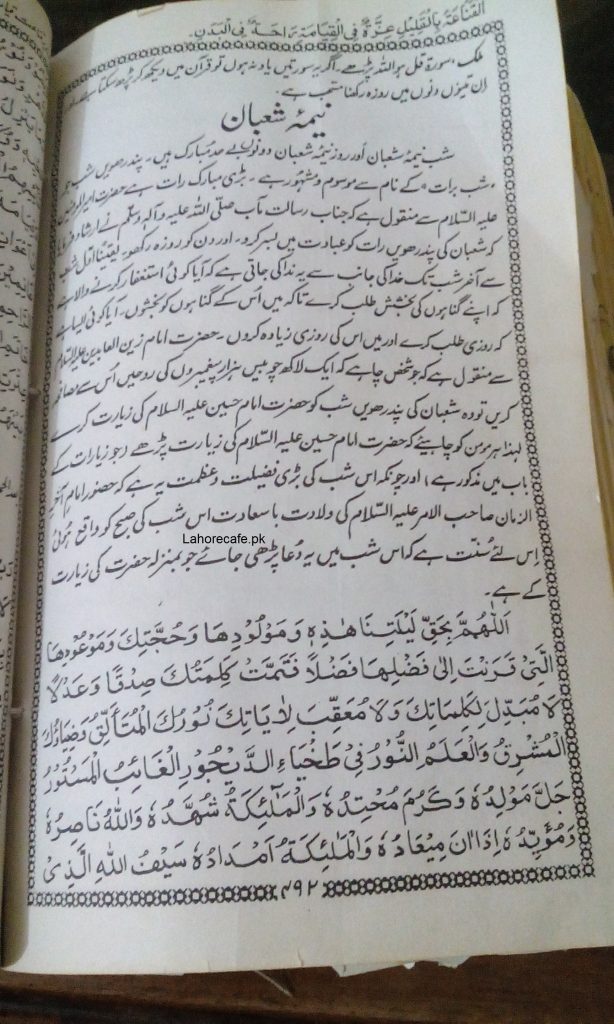 اَلْقَنَاعَةُ بِالْقَلِيْلِ عِزَّةٌ فِى الْقِيَامَةِ رَاحَةٌ فِى الْبَدَنِ.
ملک، سورۃ قل ہو اللہ پڑھے۔ اگر یہ سورتیں یاد نہ ہوں تو قرآن میں دیکھ کر پڑھ سکتا ہے
ان تینوں دنوں میں روزہ رکھنا مستحب ہے۔
نیمۂ شعبان
شب نیمۂ شعبان اور روز نیمۂ شعبان دونوں بے حد مبارک ہیں۔ پندرھویں شب
"شب برات" کے نام سے موسوم و مشہور ہے۔ بڑی مبارک رات ہے حضرت امیر المومنین
علیہ السلام سے منقول ہے کہ جناب رسالت مآب صلی اللہ علیہ وآلہ وسلم نے ارشاد فرمایا
کہ شعبان کی پندرھویں رات کو عبادت میں بسر کرو۔ اور دن کو روزہ رکھو۔ یقیناً اول شب
سے آخر شب تک خدا کی جانب سے یہ ندا کی جاتی ہے کہ آیا کوئی استغفار کرنے والا ہے
کہ اپنے گناہوں کی بخشش طلب کرے تاکہ میں اُس کے گناہوں کو بخشوں۔ آیا کوئی ایسا ہے
کہ روزی طلب کرے اور میں اس کی روزی زیادہ کروں۔ حضرت امام زین العابدین علیہ السلام
سے منقول ہے کہ جو شخص چاہے کہ ایک لاکھ چوبیس ہزار پیغمبروں کی روحیں اُس سے مصافحہ
کریں تو وہ شعبان کی پندرھویں شب کو حضرت امام حسین علیہ السلام کی زیارت کرے
لہٰذا ہر مومن کو چاہیئے کہ حضرت امام حسین علیہ السلام کی زیارت پڑھے (جو زیارات کے
باب میں مذکور ہے) اور چونکہ اس شب کی بڑی فضیلت و عظمت یہ ہے کہ حضور امام آخر
الزمان صاحب الامر علیہ السلام کی ولادت با سعادت اس شب کی صبح کو واقع ہوئی
Lahorecafe.pk
اِس لئے سُنّت ہے کہ اس شب میں یہ دُعا پڑھی جائے جو بمنزلہ حضرت کی زیارت
کے ہے۔
اَللّٰهُمَّ بِحَقِّ لَيْلَتِنَا هٰذِهٖ وَمَوْلُوْدِهَا وَحُجَّتِكَ وَمَوْعُوْدِهَا
الَّتِىْ قَرَنْتَ اِلٰى فَضْلِهَا فَضْلًا فَتَمَّتْ كَلِمَتُكَ صِدْقًا وَعَدْلًا
لَا مُبَدِّلَ لِكَلِمَاتِكَ وَلَا مُعَقِّبَ لِاٰيَاتِكَ نُوْرُكَ الْمُتَاَلِّقُ وَضِيَاؤُكَ
الْمُشْرِقُ وَالْعَلَمُ النُّوْرُ فِىْ طَخْيَاءِ الدَّيْجُوْرِ الْغَائِبُ الْمَسْتُوْرُ
جَلَّ مَوْلِدُهٗ وَكَرُمَ مَحْتِدُهٗ وَالْمَلٰئِكَةُ شُهَّدُهٗ وَاللّٰهُ نَاصِرُهٗ
وَمُؤَيِّدُهٗ اِذَا اٰنَ مِيْعَادُهٗ وَالْمَلٰئِكَةُ اَمْدَادُهٗ سَيْفُ اللّٰهِ الَّذِىْ
۴۹۲